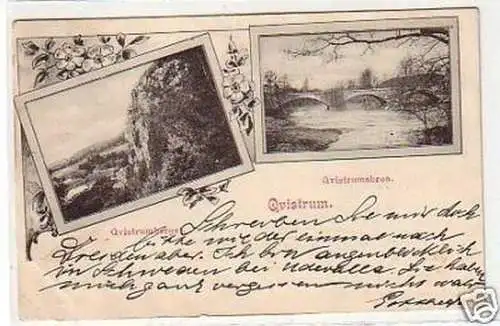 Qvistrumsbron.
Qvistrumsberget
Qvistrum.
Schreiben Sie mir doch
bitte wieder einmal nach
Dresden aber. Ich bin augenblicklich
in Schweden bei Udevalla. Sie haben
mich ganz vergessen nicht wahr